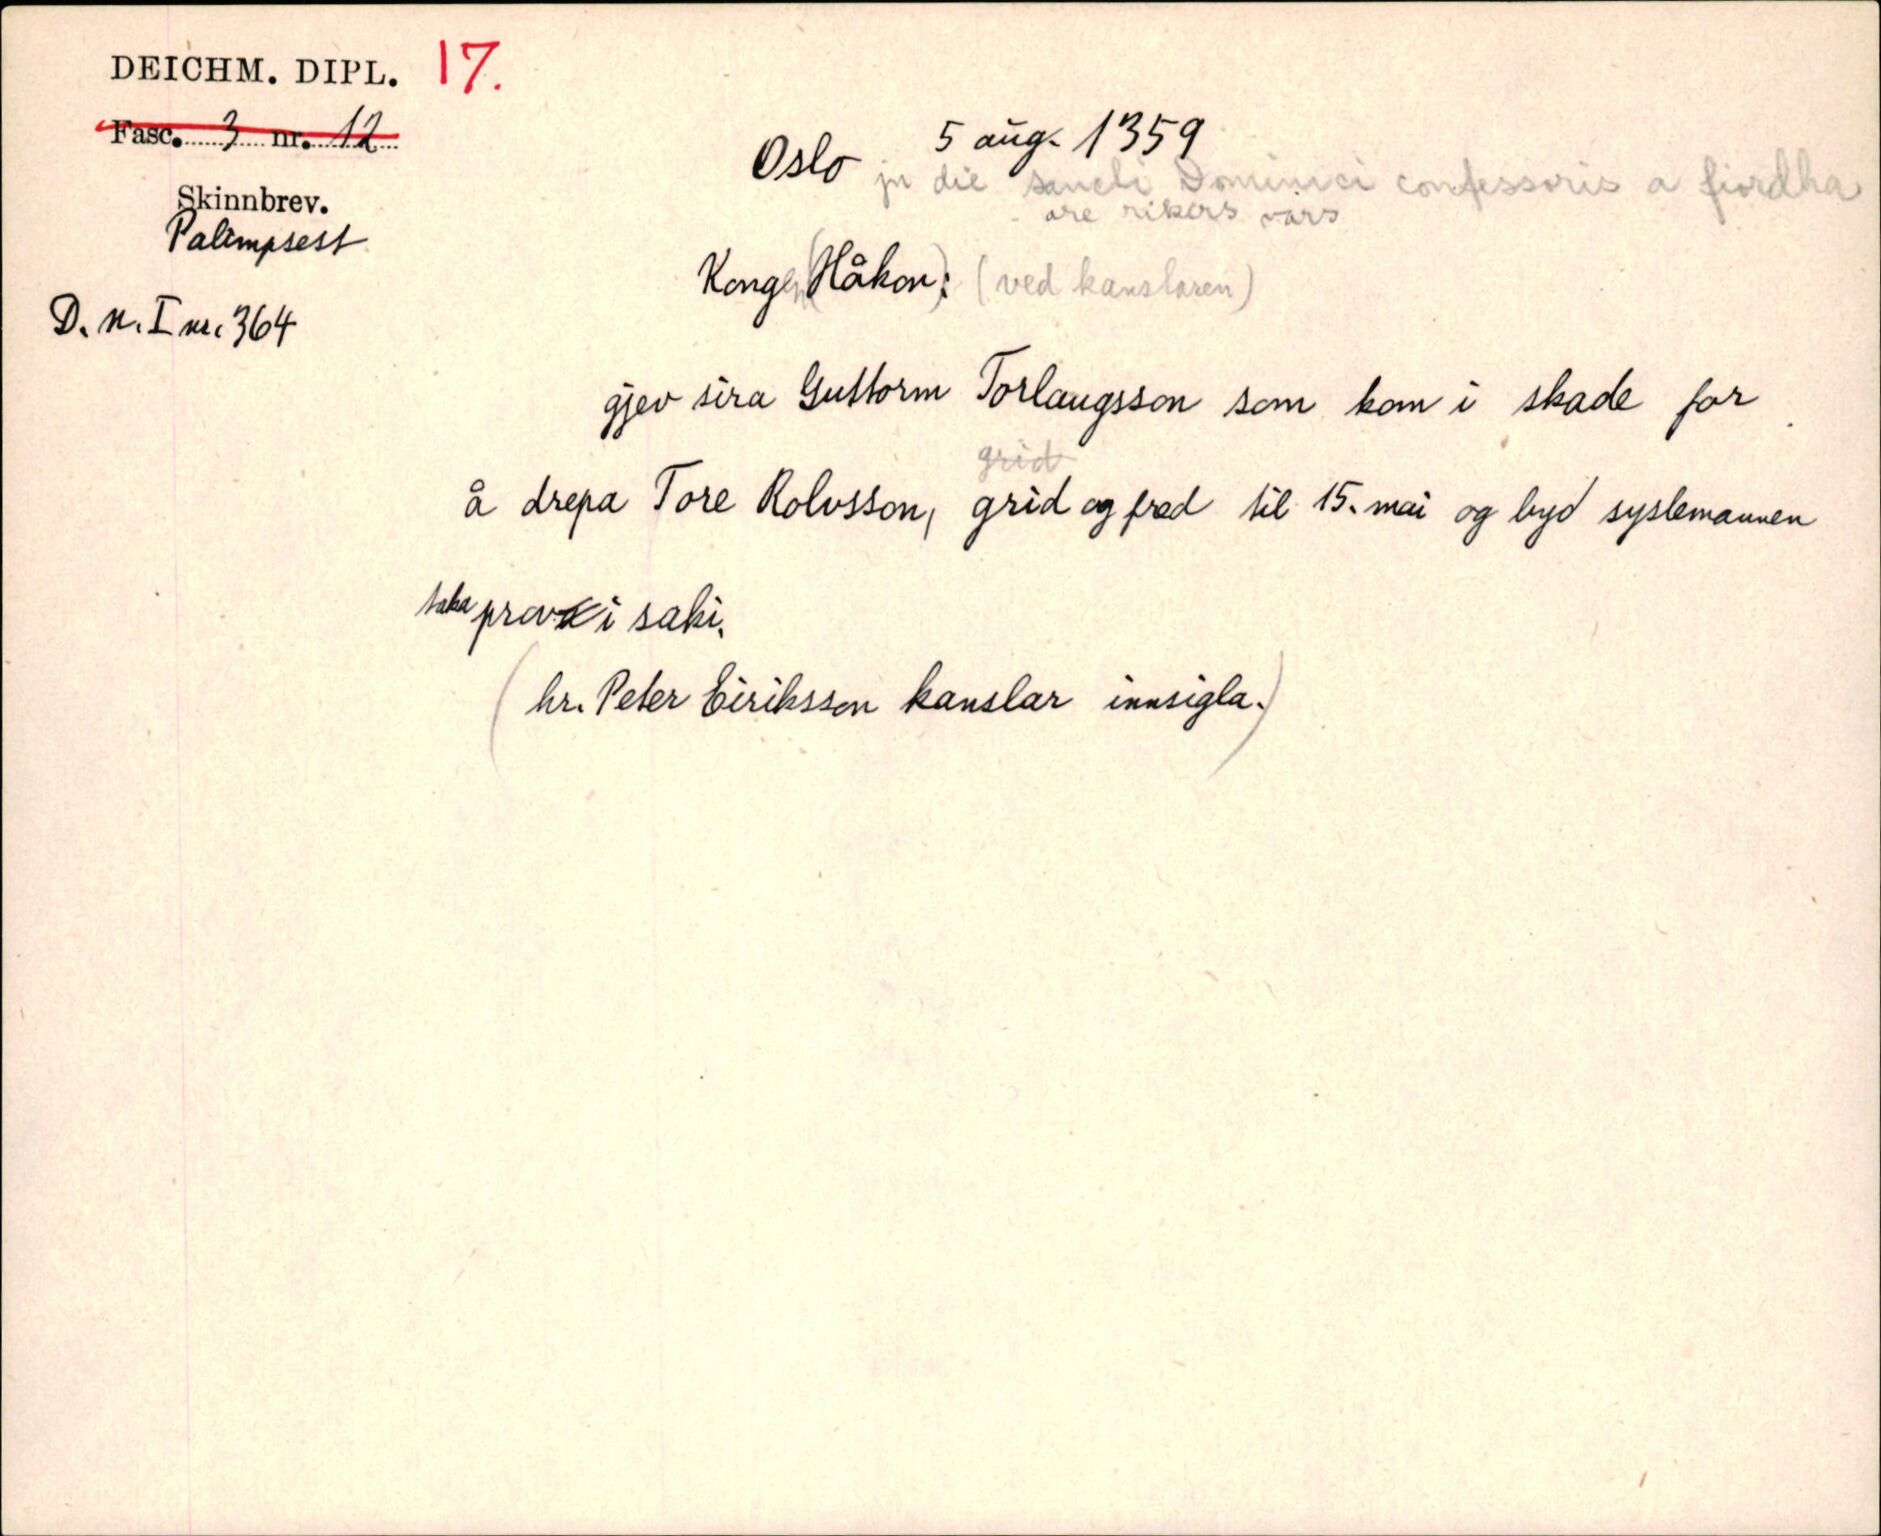 DEICHM. DIPL. 17.
Fasc. 3 nr. 12
Skinnbrev.
Palimpsest
D. N. I nr. 364
5 aug. 1359
Oslo jn die sancti Dominici confessoris a fiordha
are rikers vars
Kongen (Håkon): (ved kanslaren)
gjev sira Guttorm Torlaugsson som kom i skade for
grid
å drepa Tore Rolvsson, grid og fred til 15. mai og byd syslemannen
taka prov i saki.
(hr. Peter Eiriksson kanslar innsigla.)